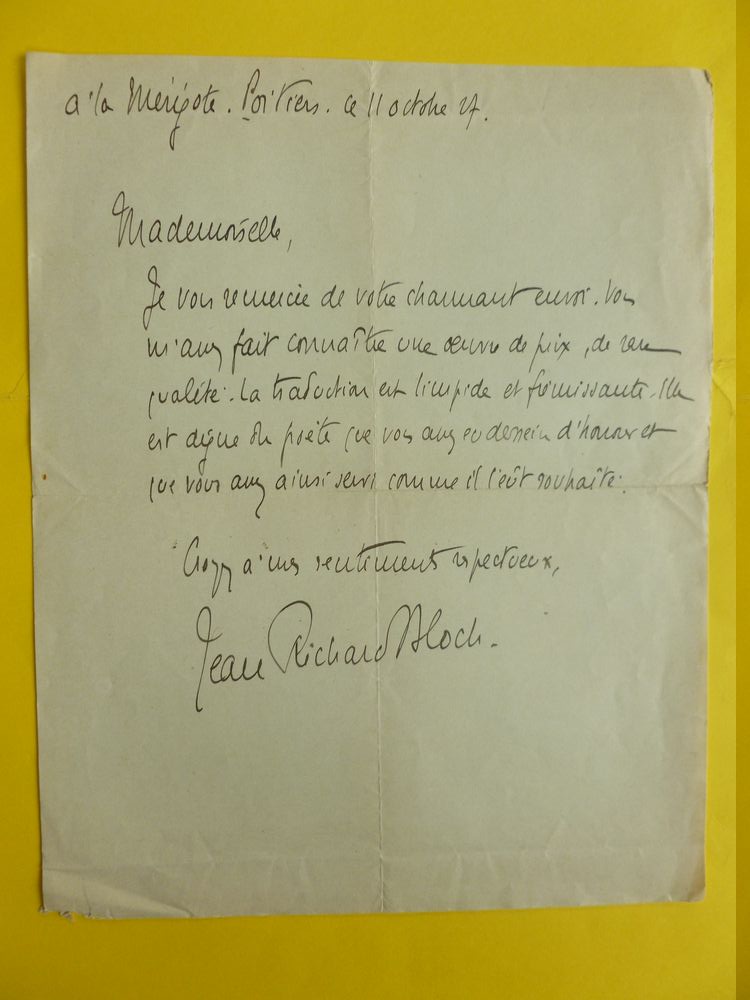 à la Mérigote. Poitiers. ce 11 octobre 27.
Mademoiselle,
Je vous remercie de votre charmant envoi. Vous
m'avez fait connaître une œuvre de prix, de rare
qualité. La traduction est limpide et frémissante. Elle
est digne du poète que vous avez eu dessein d'honorer et
que vous avez ainsi servi comme il l'eût souhaité.
Croyez à mes sentiments respectueux,
Jean Richard Bloch.